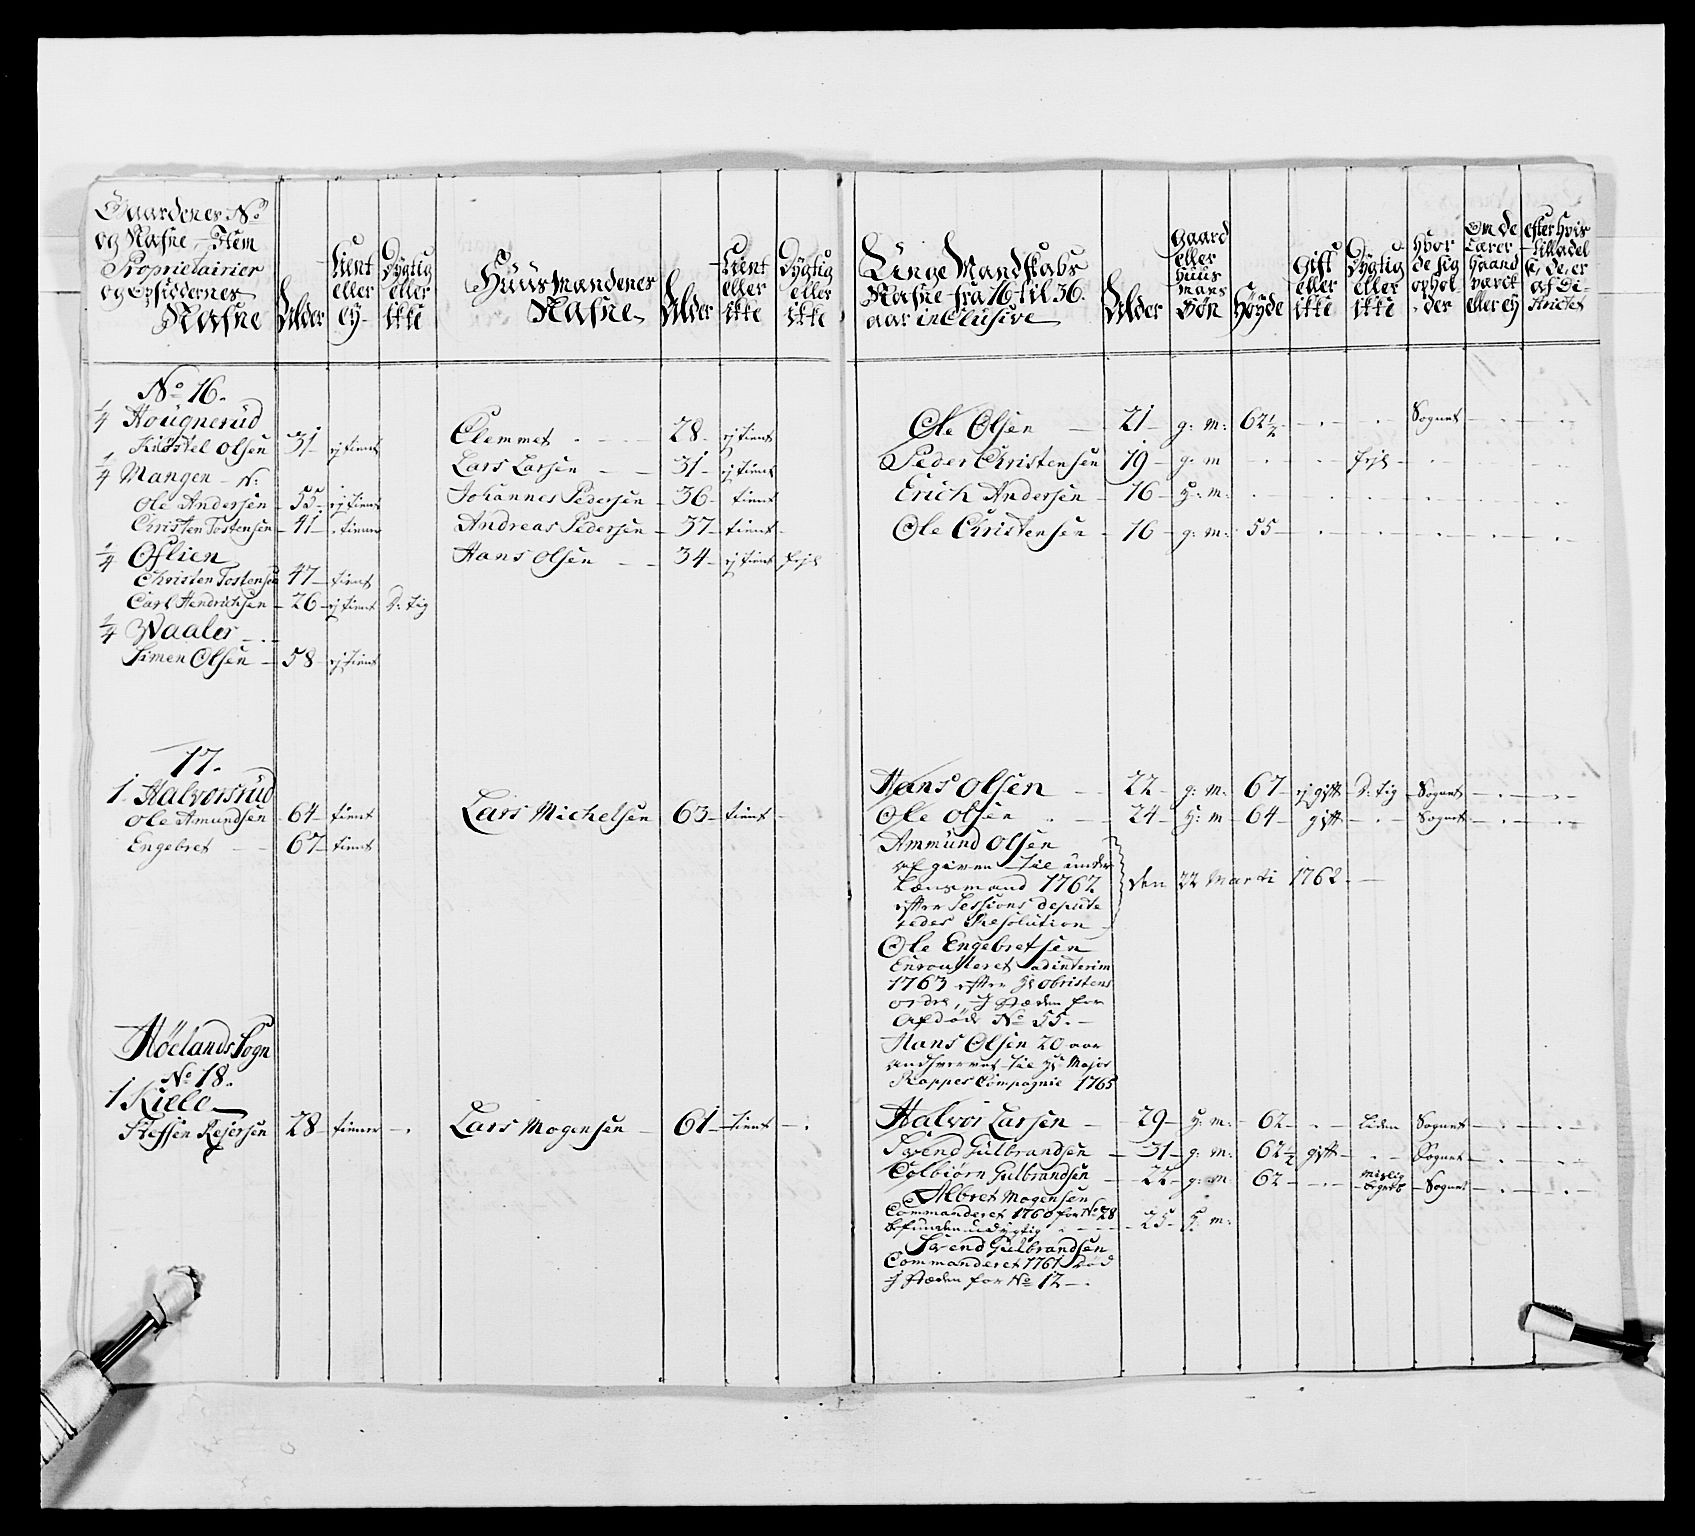 Gaardenes No
og Nafne, Item
Proprietairier
og Opsiddernes
Nafne
Alder
tient
eller
ey
Dygtig
eller
ikke
Huusmandenes
Nafne
Alder
tient
eller
ikke
Dygtig
eller
ikke
Unge Mandskabs
Nafne fra 16 til 36.
aar inclusive
Alder
Gaard
eller
huus
mans
Søn
Høyde
gift
eller
ikke
Dygtig
eller
ikke
hvor
de sig
ophol-
der
Om de
lærer
Haand
værck
eller ey
efter hvis
tilladel
se de er
af Di-
strictet
No 16.
1/4 Hougnerud
Kirstel Olsen 31 ej tient Clemmet 28 ej tient Ole Olsen 21 g: m: 62 1/2 Sognet
1/4 Mangen N: Lars Larsen 31 ej tient Peder Christensen 19 g: m fejl
Ole Andersen 55 ej tient Johannes Pedersen 36 tient Erich Andersen 16 H: m:
Christen Tostensen 41 tiener Andreas Pedersen 37 tient Ole Christensen 16 g: m: 55
1/4 Oslien Hans Olsen 34 ej tient fejl
Christen Tostensen 47 tient
Carl Hendrichsen 26 ej tient D: tig
1/4 Waaler
Simen Olsen 58 ej tient
17.
1 Halvorsrud Hans Olsen 22 g: m: 67 ej gift D: tig Sognet
Ole Amundsen 64 tient Lars Michelsen 63 tient Ole Olsen 24 H: m 64 gift Sognet
Engebret 67 tient Ammund Olsen
afgiven til under
Lensmand 1762 den 22 Marti 1762.
efter Sessions depute
redes Resolution
Ole Engebretsen
Enroulleret ad interim
1763 efter Hr Obristens
ordre, I Stæden for
Afdøde No 55.
Hans Olsen 20 aar
andhvervet til Hr Major
Rappes Compagnie 1765
Høelands Sogn
No 18.
1 Kielle
Steffen Rejersen 28 tiener Lars Mogensen 61 tient Halvor Larsen 29 H: m: 62 liden Sognet
Svend Gulbrandsen 31 g: m: 62 1/2 gift Sognet
Colbiørn Gulbrandsen 22 g: m: 62 Sognet
Albret Mogensen
Commanderet 1760 for No 28
befunden udygtig 25 H: m:
Svend Gulbrandsen
Commanderet 1761 død
I Stæden for No 12